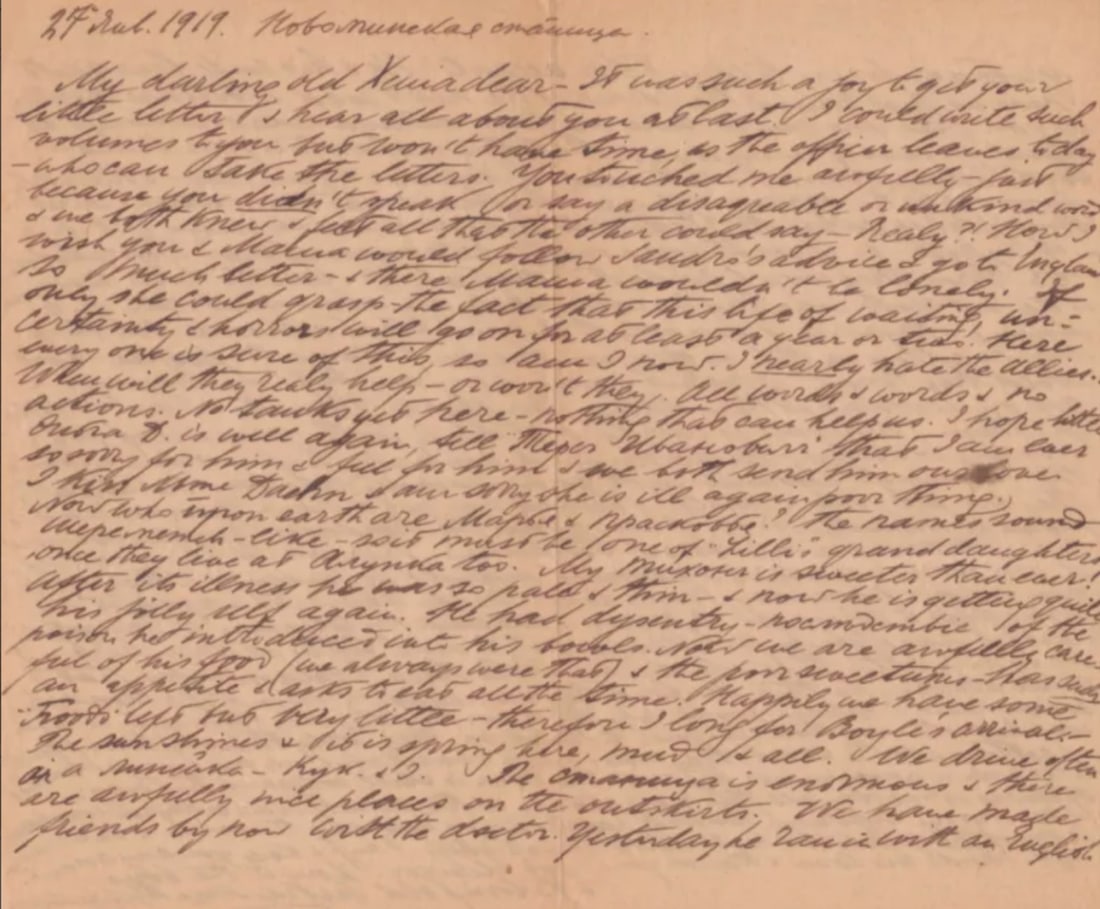 27 Янв. 1919. Новоминская станица.
My darling old Xenia dear – It was such a joy to get your
little letter & hear all about you at last. I could write such
volumes to you but won't have time, as the officer leaves today
– who can take the letters. You touched me awfully – just
because you didn't speak or say a disagreeable or unkind word
& we both knew & felt all that the other could say – Realy?! How I
wish you & Mama would follow Sandro's advice & go to England
so much better – & there Mama wouldn't be lonely. If
only she could grasp the fact that this life of waiting, un-
certainty & horrors will go on for at least a year or two. Here
every one is sure of this so am I now. I nearly hate the allies.
When will they realy help – or won't they. All words & words & no
actions. No tanks yet here – nothing that can help us. I hope little
D. is well again, tell that I am ever
so sorry for him & feel for him & we both send him our love
I kiss Mme & am sorry she is ill again poor thing.
Now who upon earth are & ? The names sound
-like – so it must be one of "Lilli's" granddaughters
once they live at too. My Тихон is sweeter than ever!
After its illness he was so pale & thin – & now he is getting quite
his jolly self again. He had dysentry – of the
poison he introduced into his bowels. Now we are awfully care-
ful of his food (we always were that) & the poor sweetums – has such
an appetite & asks to eat all the time. Happily we have some
"Food" left but very little – therefore I long for Boyle's arrival. –
The sun shines & it is spring here, mud & all. We drive often
in a линейка – Кук. & I. The станица is enormous & there
are awfully nice places on the outskirts. We have made
friends by now with the doctor. Yesterday he came with an English